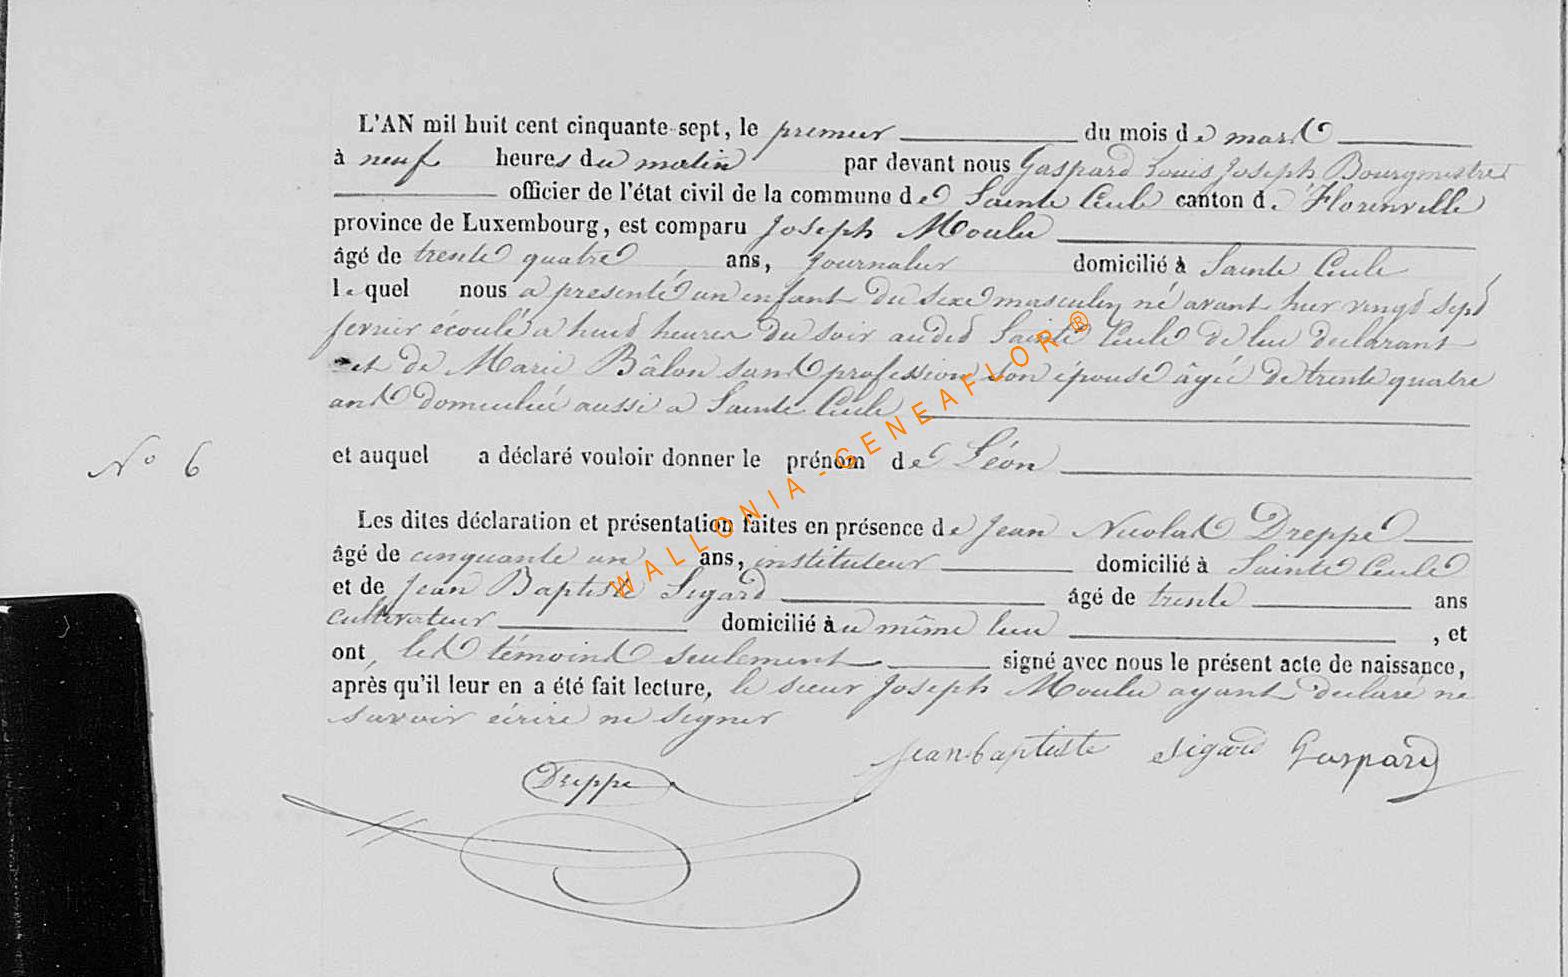 L'AN mil huit cent cinquante-sept, le premier du mois de mars
à neuf heures du matin par devant nous Gaspard Louis Joseph Bourgmestre
officier de l'état civil de la commune de Sainte Cécile canton de Florenville
province de Luxembourg, est comparu Joseph Moulu
âgé de trente quatre ans, journalier domicilié à Sainte Cécile
lequel nous a présenté un enfant du sexe masculin né avant hier vingt sept
fevrier écoulé a huit heures du soir audit Sainte Cécile de lui déclarant
et de Marie Bâlon sans profession son épouse âgée de trente quatre
ans domiciliée aussi a Sainte Cécile
et auquel a déclaré vouloir donner le prénom de Léon
N° 6
Les dites déclaration et présentation faites en présence de Jean Nicolas Dreppe
âgé de cinquante un ans, instituteur domicilié à Sainte Cécile
et de Jean Baptiste Sigard âgé de trente ans
cultivateur domicilié au même lieu , et
ont, les témoins seulement signé avec nous le présent acte de naissance,
après qu'il leur en a été fait lecture, le sieur Joseph Moulu ayant déclaré ne
savoir écrire ne signer
Jean-baptiste sigard Gaspard
Dreppe
WALLONIA - GENEAFLOR ®